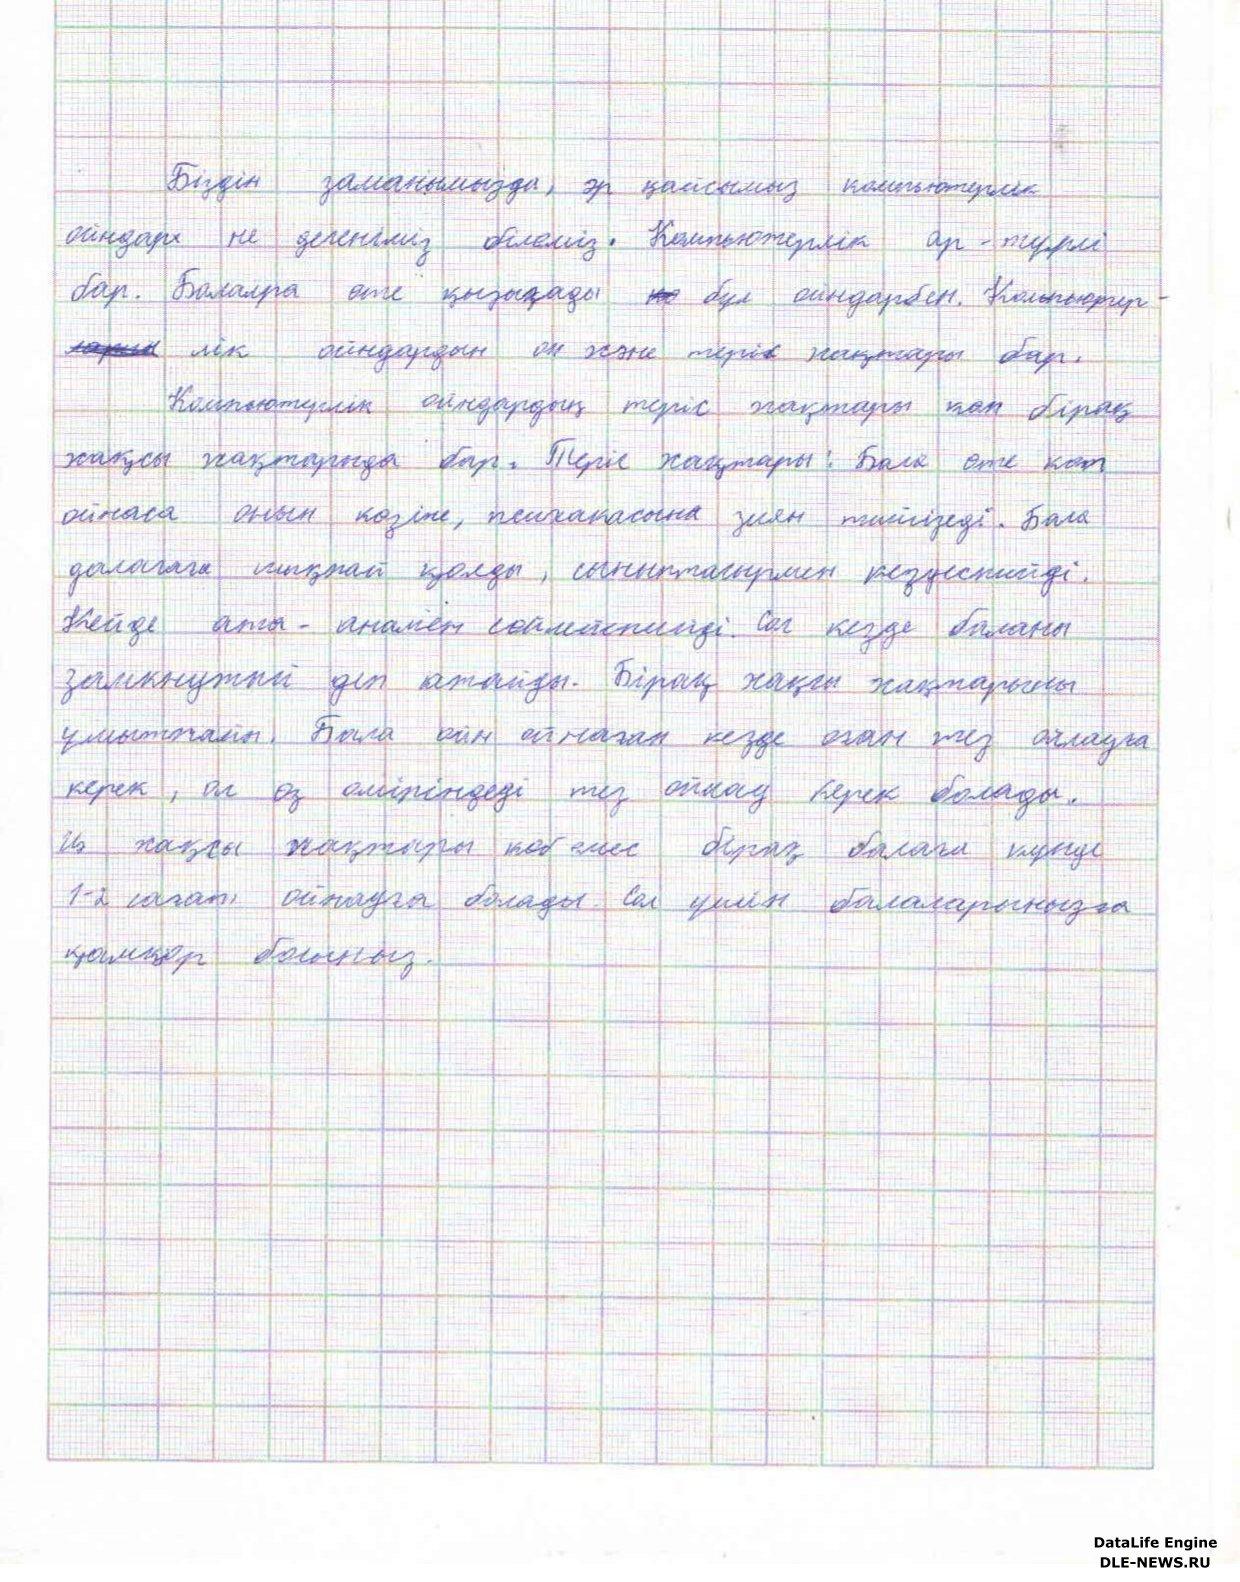 Біздін заманымызда, әр қайсымыз компьютерлік
ойндарх не дегеніміз білеміз. Компьютерлік ар-түрлі
бар. Балалра өте қызығады бұл ойндарбен. Компьютер-
лік ойндардын он және теріс жақтары бар.
Компьютерлік ойндардың теріс жақтары коп бірақ
жақсы жақтарыда бар. Теріс жақтары: Бала оте коп
ойнаса онын козіне, психакасына зиян тигізеді. Бала
далагага шықпай қолды, сыныптасырмен кездеспийді.
Кейде ата-анамен сойлеспийді. Сол кезде баланы
замкнутый деп атайды. Бірақ жақсы жақтарыны
ұмытпайн. Бала ойн ойнаган кезде оган тез ойлауга
керек, ол оз омірінделі тез ойлау керек болады.
Из жақсы жақтары коб емес бірақ балага кунде
1-2 сагат ойнауга болады. Сол ушін балаларынызга
қамқор болыныз.
DataLife Engine
DLE-NEWS.RU